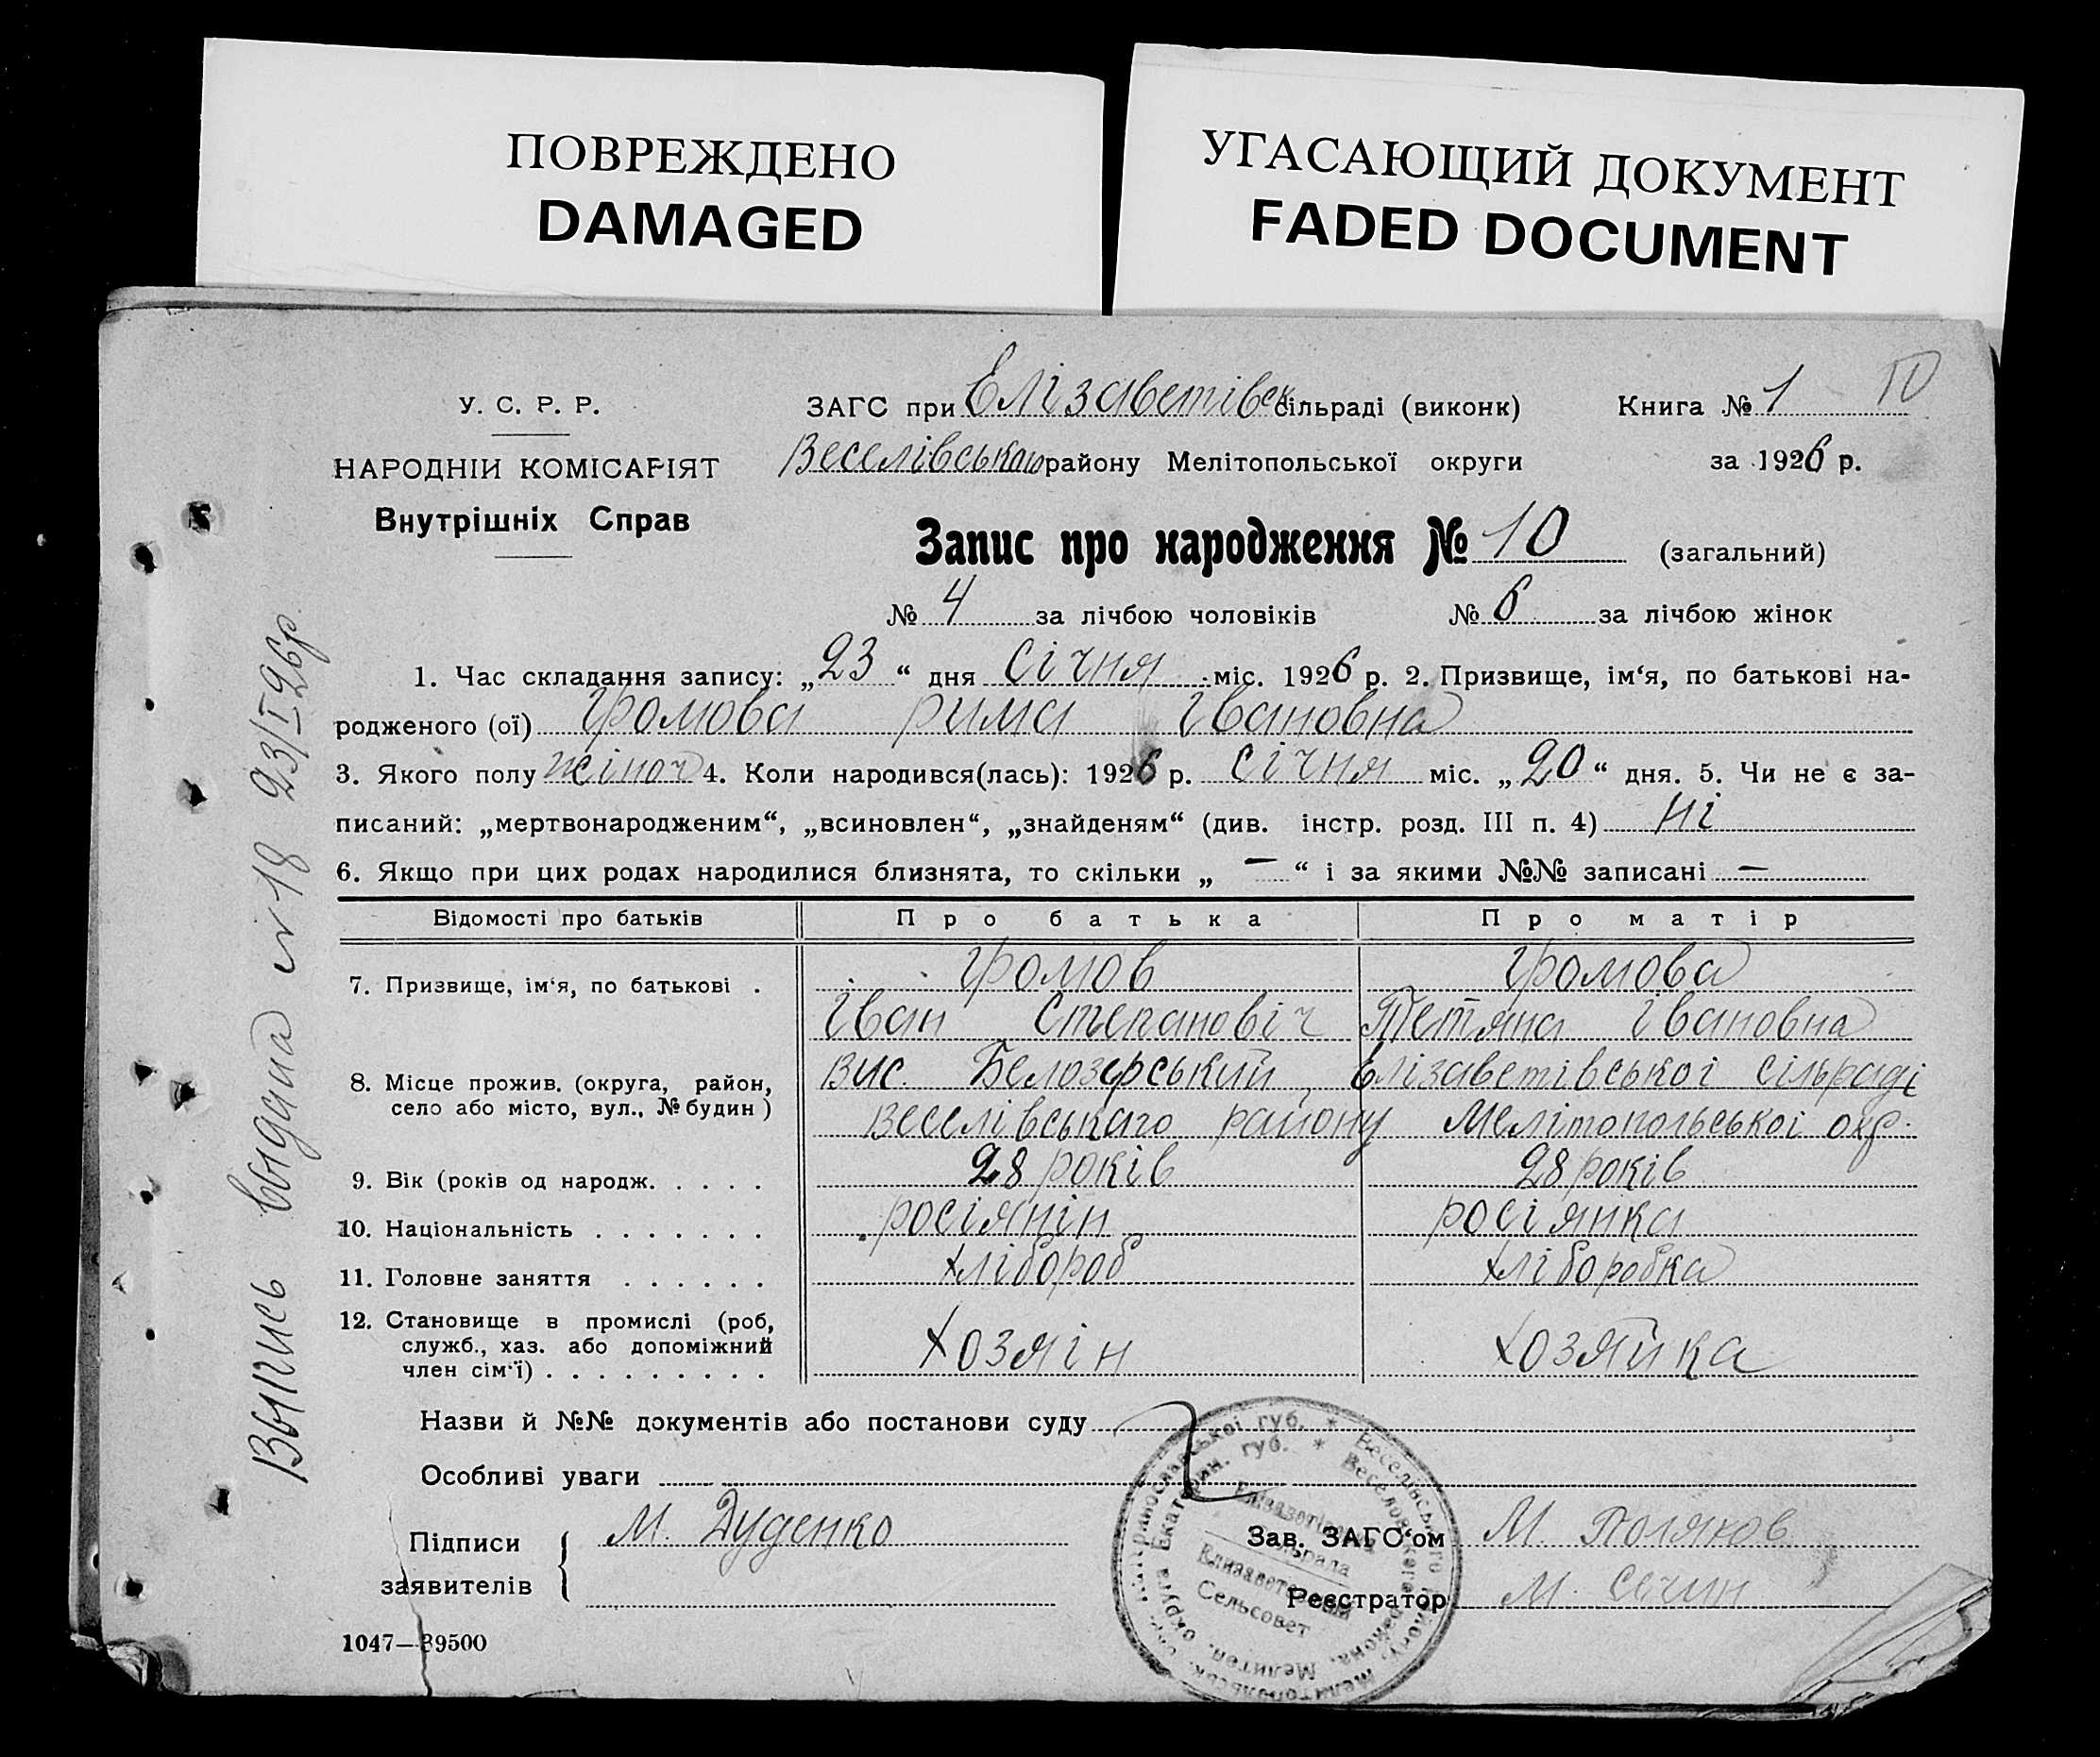 ПОВРЕЖДЕНО
DAMAGED
УГАСАЮЩИЙ ДОКУМЕНТ
FADED DOCUMENT
У. С. Р. Р.
НАРОДНІЙ КОМІСАРІЯТ
Внутрішніх Справ
ЗАГС при Елізаветівск. сільраді (виконк)
Веселівськаго району Мелітопольської округи
Книга № 1
10
за 1926 р.
Запис про народження № 10 (загальний)
№ 4 за лічбою чоловіків № 6 за лічбою жінок
1. Час складання запису: „23“ дня Січня міс. 1926 р. 2. Призвище, ім‘я, по батькові на-
родженого (ої) Громова рима Івановна
3. Якого полу жіноч 4. Коли народився(лась): 1926 р. січня міс. „20“ дня. 5. Чи не є за-
писаний: „мертвонародженим“, „всиновлен“, „знайденям“ (див. інстр. розд. III п. 4) ні
6. Якщо при цих родах народилися близнята, то скільки „ — “ і за якими №№ записані —
Відомості про батьків Про батька Про матір
7. Призвище, ім‘я, по батькові . Громов Громова
Іван Степановіч Тетяна Івановна
8. Місце прожив. (округа, район, вис. Белозерський, Елізаветівської сільраді
село або місто, вул., № будин) Веселівськаго району Мелітопольської окр.
9. Вік (років од народж. . . . . 28 років 28 років
10. Національність . . . . . . . росіянін росіянка
11. Головне заняття . . . . . . хлібороб хліборобка
12. Становище в промислі (роб,
служб., хаз. або допоміжний хозяін хозяйка
член сім‘ї) . . . . . . . . .
Назви й №№ документів або постанови суду
Особливі уваги
Підписи М. Дуденко
заявителів
Зав. ЗАГС‘ом М. Поляков
Реєстратор М. Сечин
1047—39500
Выпись выдана № 18 23/I 26 р.
Екатерин. губ. * Веселовского района, Мелитоп. округа
сільрада
Елизаветовский
Сельсовет